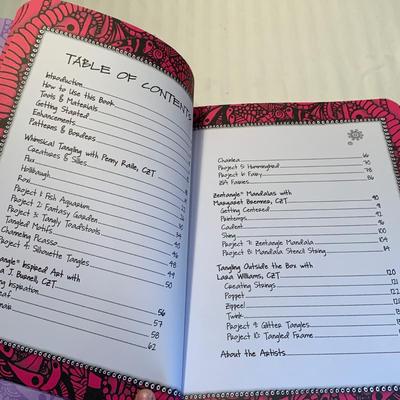 TABLE OF CONTENTS
Introduction
How to Use this Book
Tools & Materials
Getting Started
Enhancements
Patterns & Borders
Whimsical Tangling with Penny Raile, CZT
Creatures & Sillies
Flux
Hollibaugh
Roxi
Project 1: Fish Aquarium
Project 2: Fantasy Garden
Project 3: Tangly Toadstools 34
Tangled Motifs 45
Channeling Picasso 46
Project 4: Silhouette Tangles 48
49
50
Inspired Art with 56
J. Burnell, CZT 57
Inspiration 58
62
Charlea 66
Project 5: Hummingbird 70
Project 6: Fairy 78
Fairies 86
Zentangle® Mandalas with
Margaret Bremner, CZT 90
Getting Centered
Printemps 92
Cadent 96
Sting 100
Project 7: Zentangle Mandala 104
Project 8: Mandala Stencil String
Tangling Outside the Box with
Lara Williams, CZT 120
Creating Strings 121
Poppet 122
Zippeel
Twink
Project 9: Glitter Tangles
Project 10: Tangled Frame
About the Artists